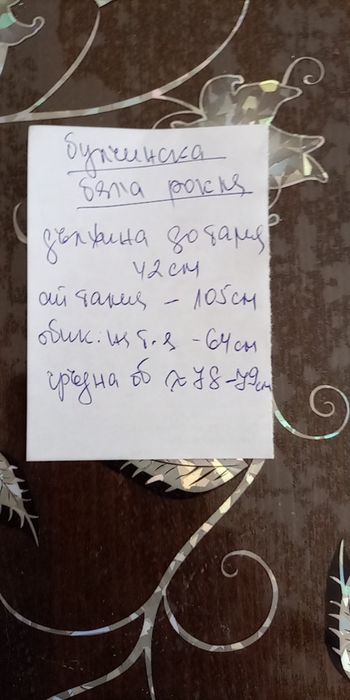 бупчинска
бяла рокля
дължина до талия
42 см
от талия - 105 см
обик. на т.я - 64 см
гръдна об ≈ 78-79 см